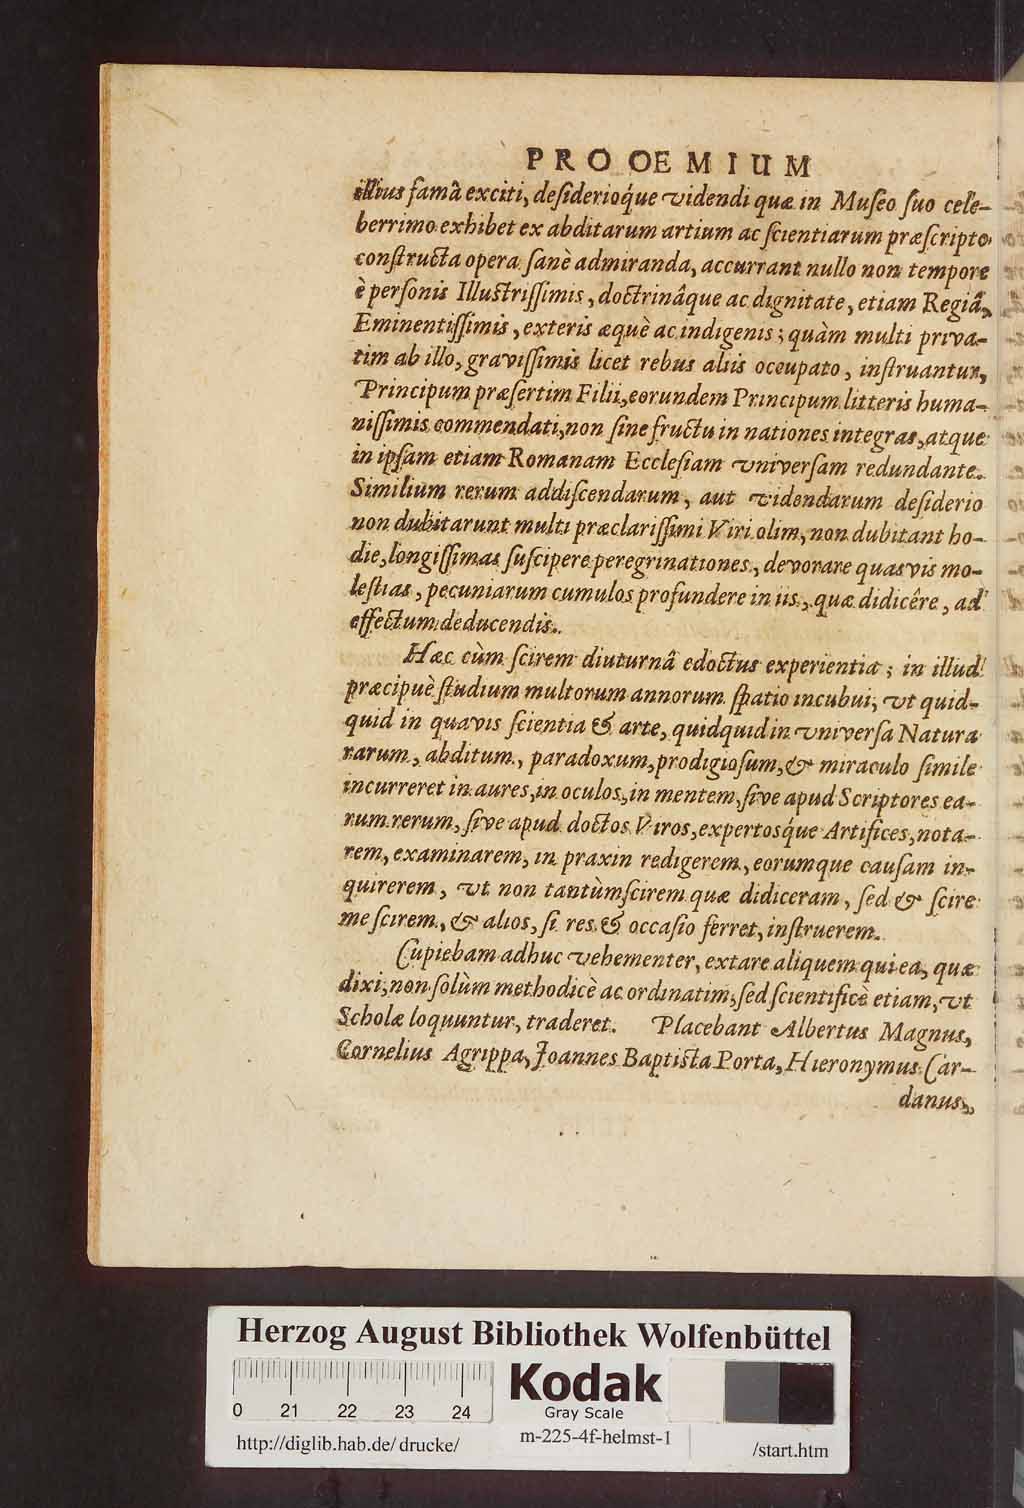 PROOEMIUM
illius famâ exciti, desiderioq́ue videndi quæ in Museo suo cele-
berrimo exhibet ex abditarum artium ac scientiarum præscripto
constructa opera sanè admiranda, accurrant nullo non tempore
è personis Illustrissimis, doctrinâque ac dignitate, etiam Regiâ,
Eminentissimis, exteris æquè ac indigenis; quàm multi priva-
tim ab illo, gravissimis licet rebus aliis occupato, instruantur,
Principum præsertim Filii, eorundem Principum litteris huma-
nissimis commendati, non sine fructu in nationes integras, atque
in ipsam etiam Romanam Ecclesiam universam redundante.
Similium rerum addiscendarum, aut videndarum desiderio
non dubitarunt multi præclarissimi Viri olim, non dubitant ho-
die, longissimas suscipere peregrinationes, devorare quasvis mo-
lestias, pecuniarum cumulos profundere in iis, quæ didicêre, ad
effectum deducendis.
Hæc cùm scirem diuturnâ edoctus experientia; in illud
præcipuè studium multorum annorum spatio incubui, ut quid-
quid in quavis scientia & arte, quidquid in universa Natura
rarum, abditum, paradoxum, prodigiosum, & miraculo simile
incurreret in aures, in oculos, in mentem, sive apud Scriptores ea-
rum rerum, sive apud doctos Viros, expertosq́ue Artifices, nota-
rem, examinarem, in praxin redigerem, eorumque causam in-
quirerem, ut non tantùm scirem quæ didiceram, sed & scire
me scirem, & alios, si res & occasio ferret, instruerem.
Cupiebam adhuc vehementer, extare aliquem qui ea, quæ
dixi, non solùm methodicè ac ordinatim, sed scientificè etiam, ut
Scholæ loquuntur, traderet. Placebant Albertus Magnus,
Cornelius Agrippa, Joannes Baptista Porta, Hieronymus Car-
danus,
Herzog August Bibliothek Wolfenbüttel
0 21 22 23 24
Kodak
Gray Scale
http://diglib.hab.de/drucke/
m-225-4f-helmst-1
/start.htm